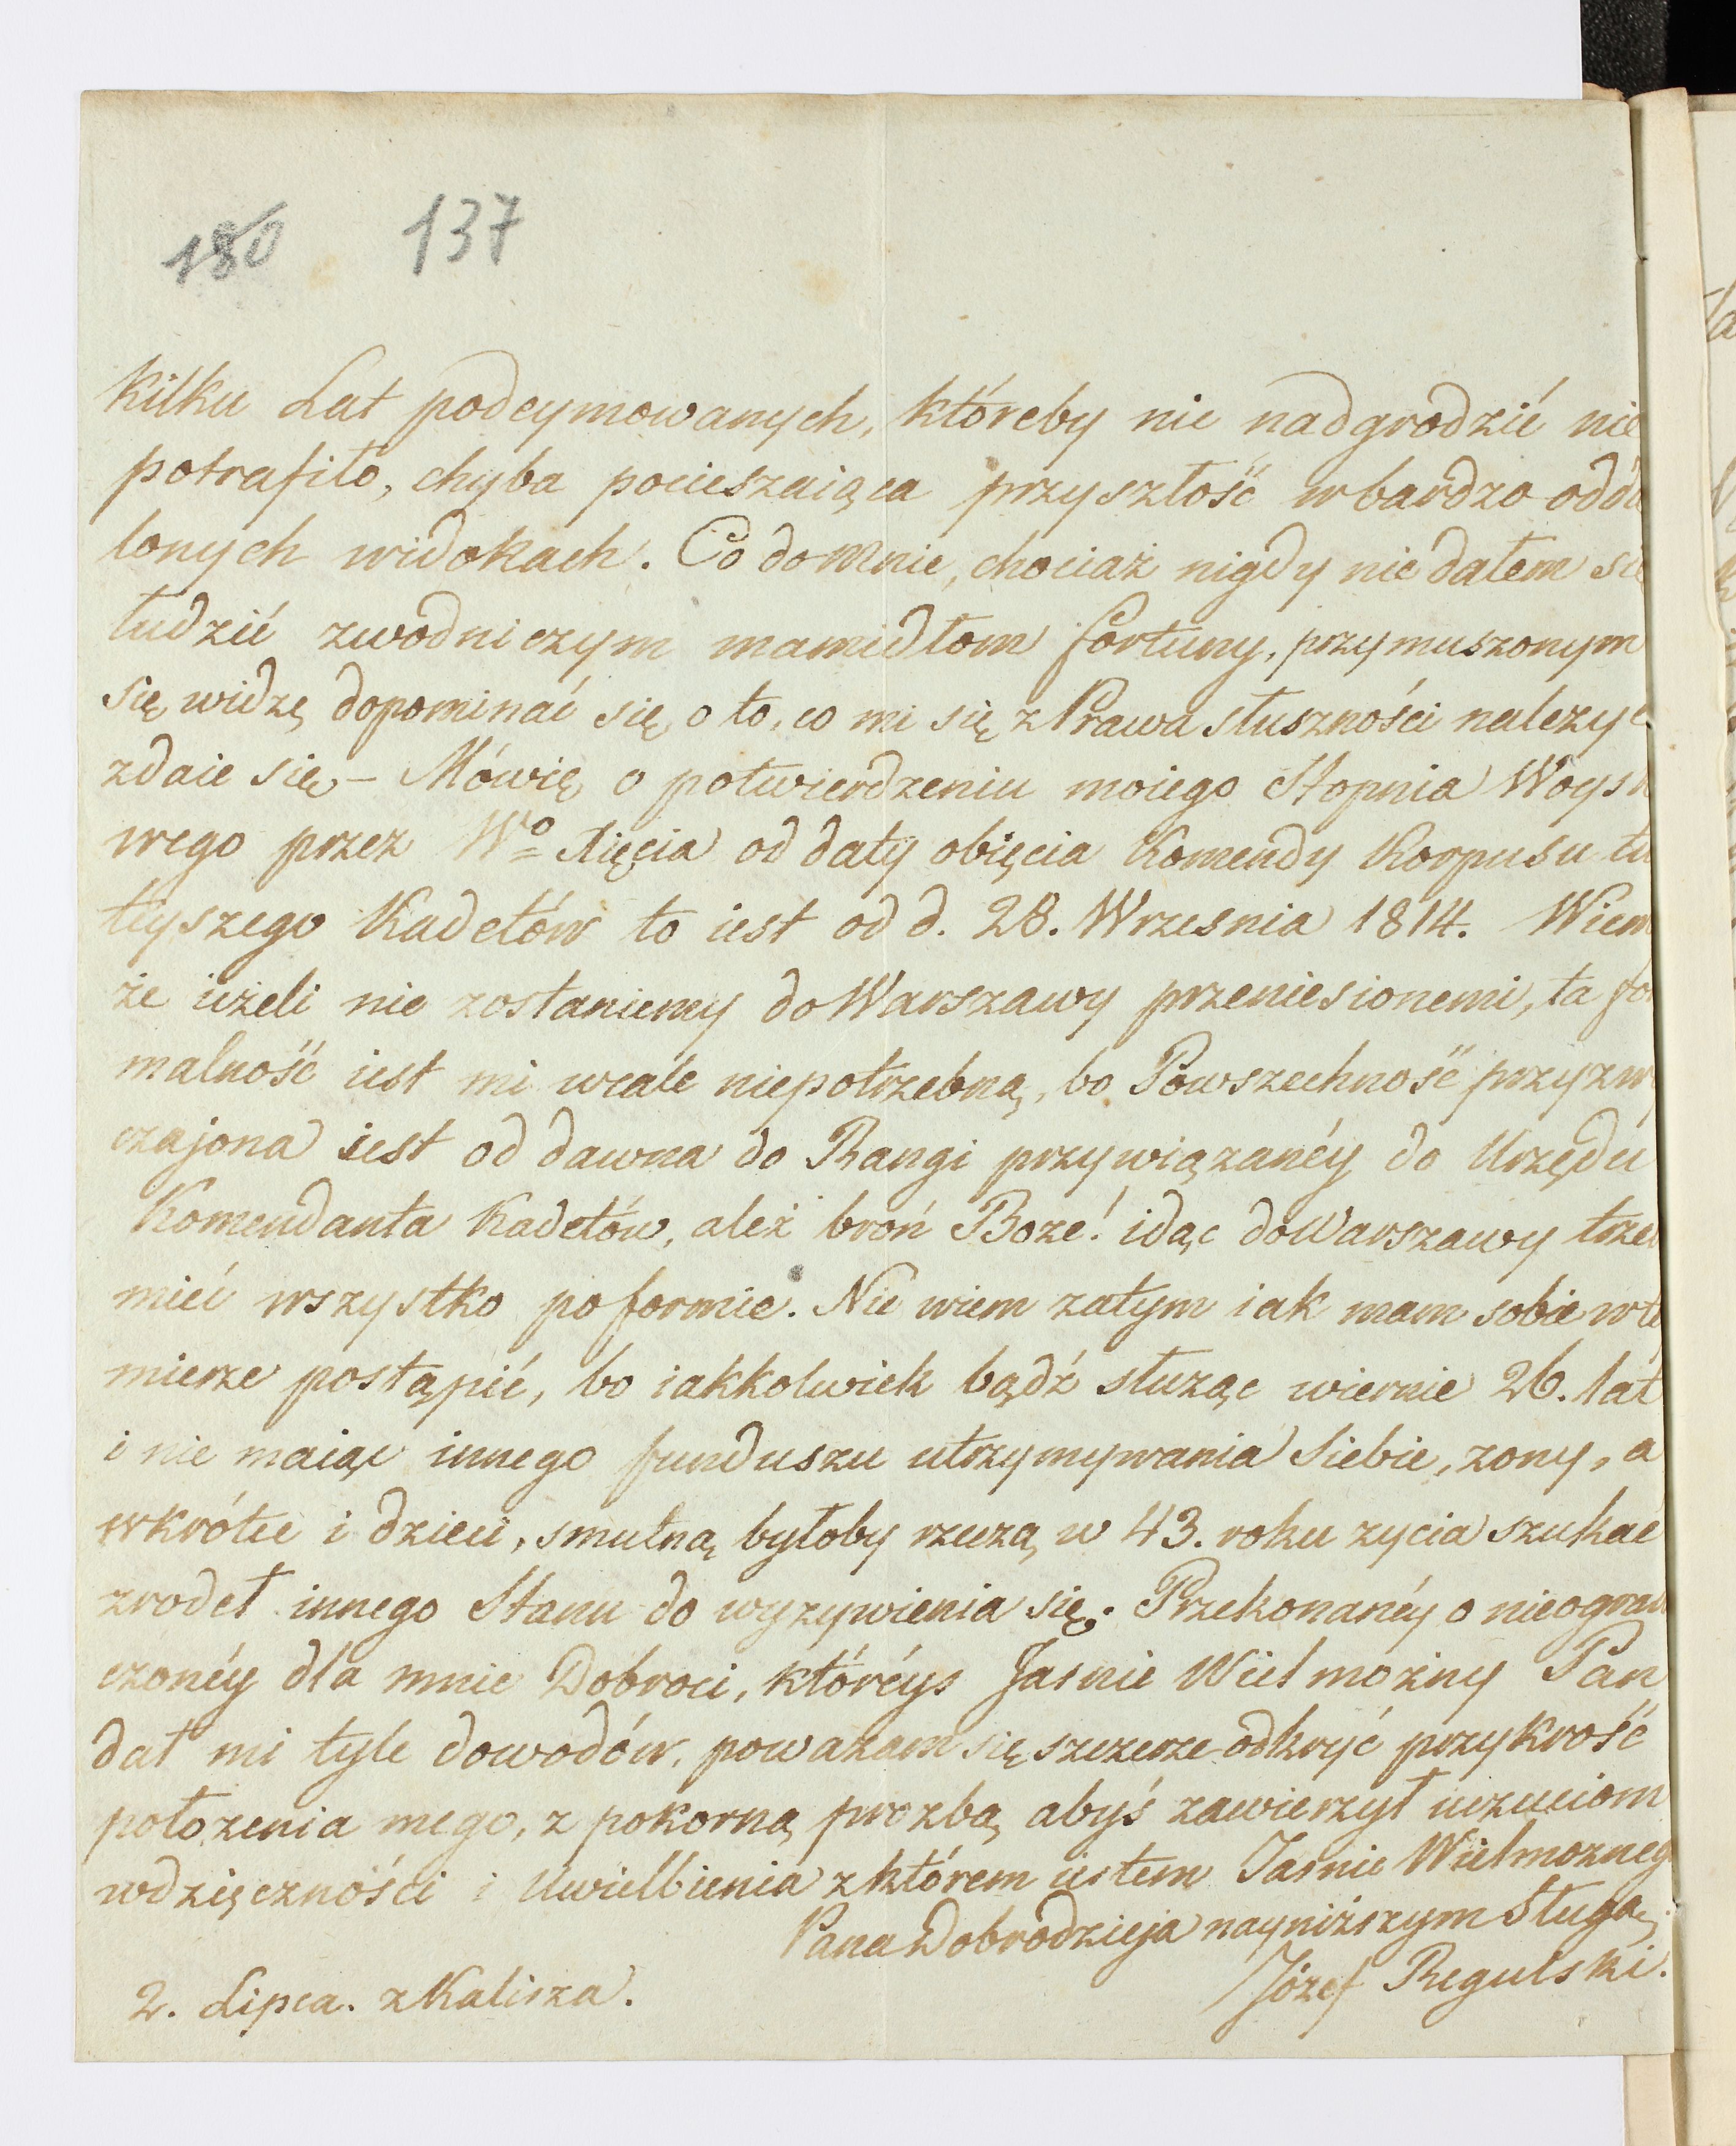 180 137
kilku Lat podeymowanych, któreby nic nadgrodzić nie
potrafiło, chyba pocieszaiąca przyszłość w bardzo odda
lonych widokach. Co do mnie, chociaż nigdy nie dałem się
łudzić zwodniczym mamidłom fortuny, przymuszonym
się widzę dopominać się o to, co mi się z Prawa słuszności należyć
zdaie się – Mówię o potwierdzeniu moiego Stopnia Woysko
wego przez Wº Xięcia od daty obięcia Komendy Korpusu tu
teyszego Kadetów to iest od d. 28. Wrzesnia 1814. Wiem
że ieżeli nie zostaniemy do Warszawy przeniesionemi, ta for
malność iest mi wcale niepotrzebną, bo Powszechność przyzwy
czajona iest od dawna do Rangi przywiązanéy do Urzędu
Komendanta Kadetów, ależ broń Boże! idąc do Warszawy trzeba
mieć wszystko po formie. Nie wiem zatym iak mam sobie w téy
mierze postąpić, bo iakkolwiek bądź służąc wiernie 26. lat
i nie maiąc innego funduszu utrzymywania siebie, zony, a
wkrótce i dzieci, smutną byłoby rzeczą w 43. roku zycia szukać
zrodeł innego Stanu do wyzywienia się. Przekonanéy o nieograni
czonéy dla mnie Dobroci, któréys Jasnie Wielmożny Pan
dał mi tyle dowodów, powazam się szczerze odkryć przykrość
położenia mego, z pokorną prozbą abyś zawierzył uczuciom
wdzięczności i Uwielbienia z którem iestem Jasnie Wielmoznego
Pana Dobrodzieja nayniższym Sługą
Józef Regulski.
2. Lipca. z Kalisza.